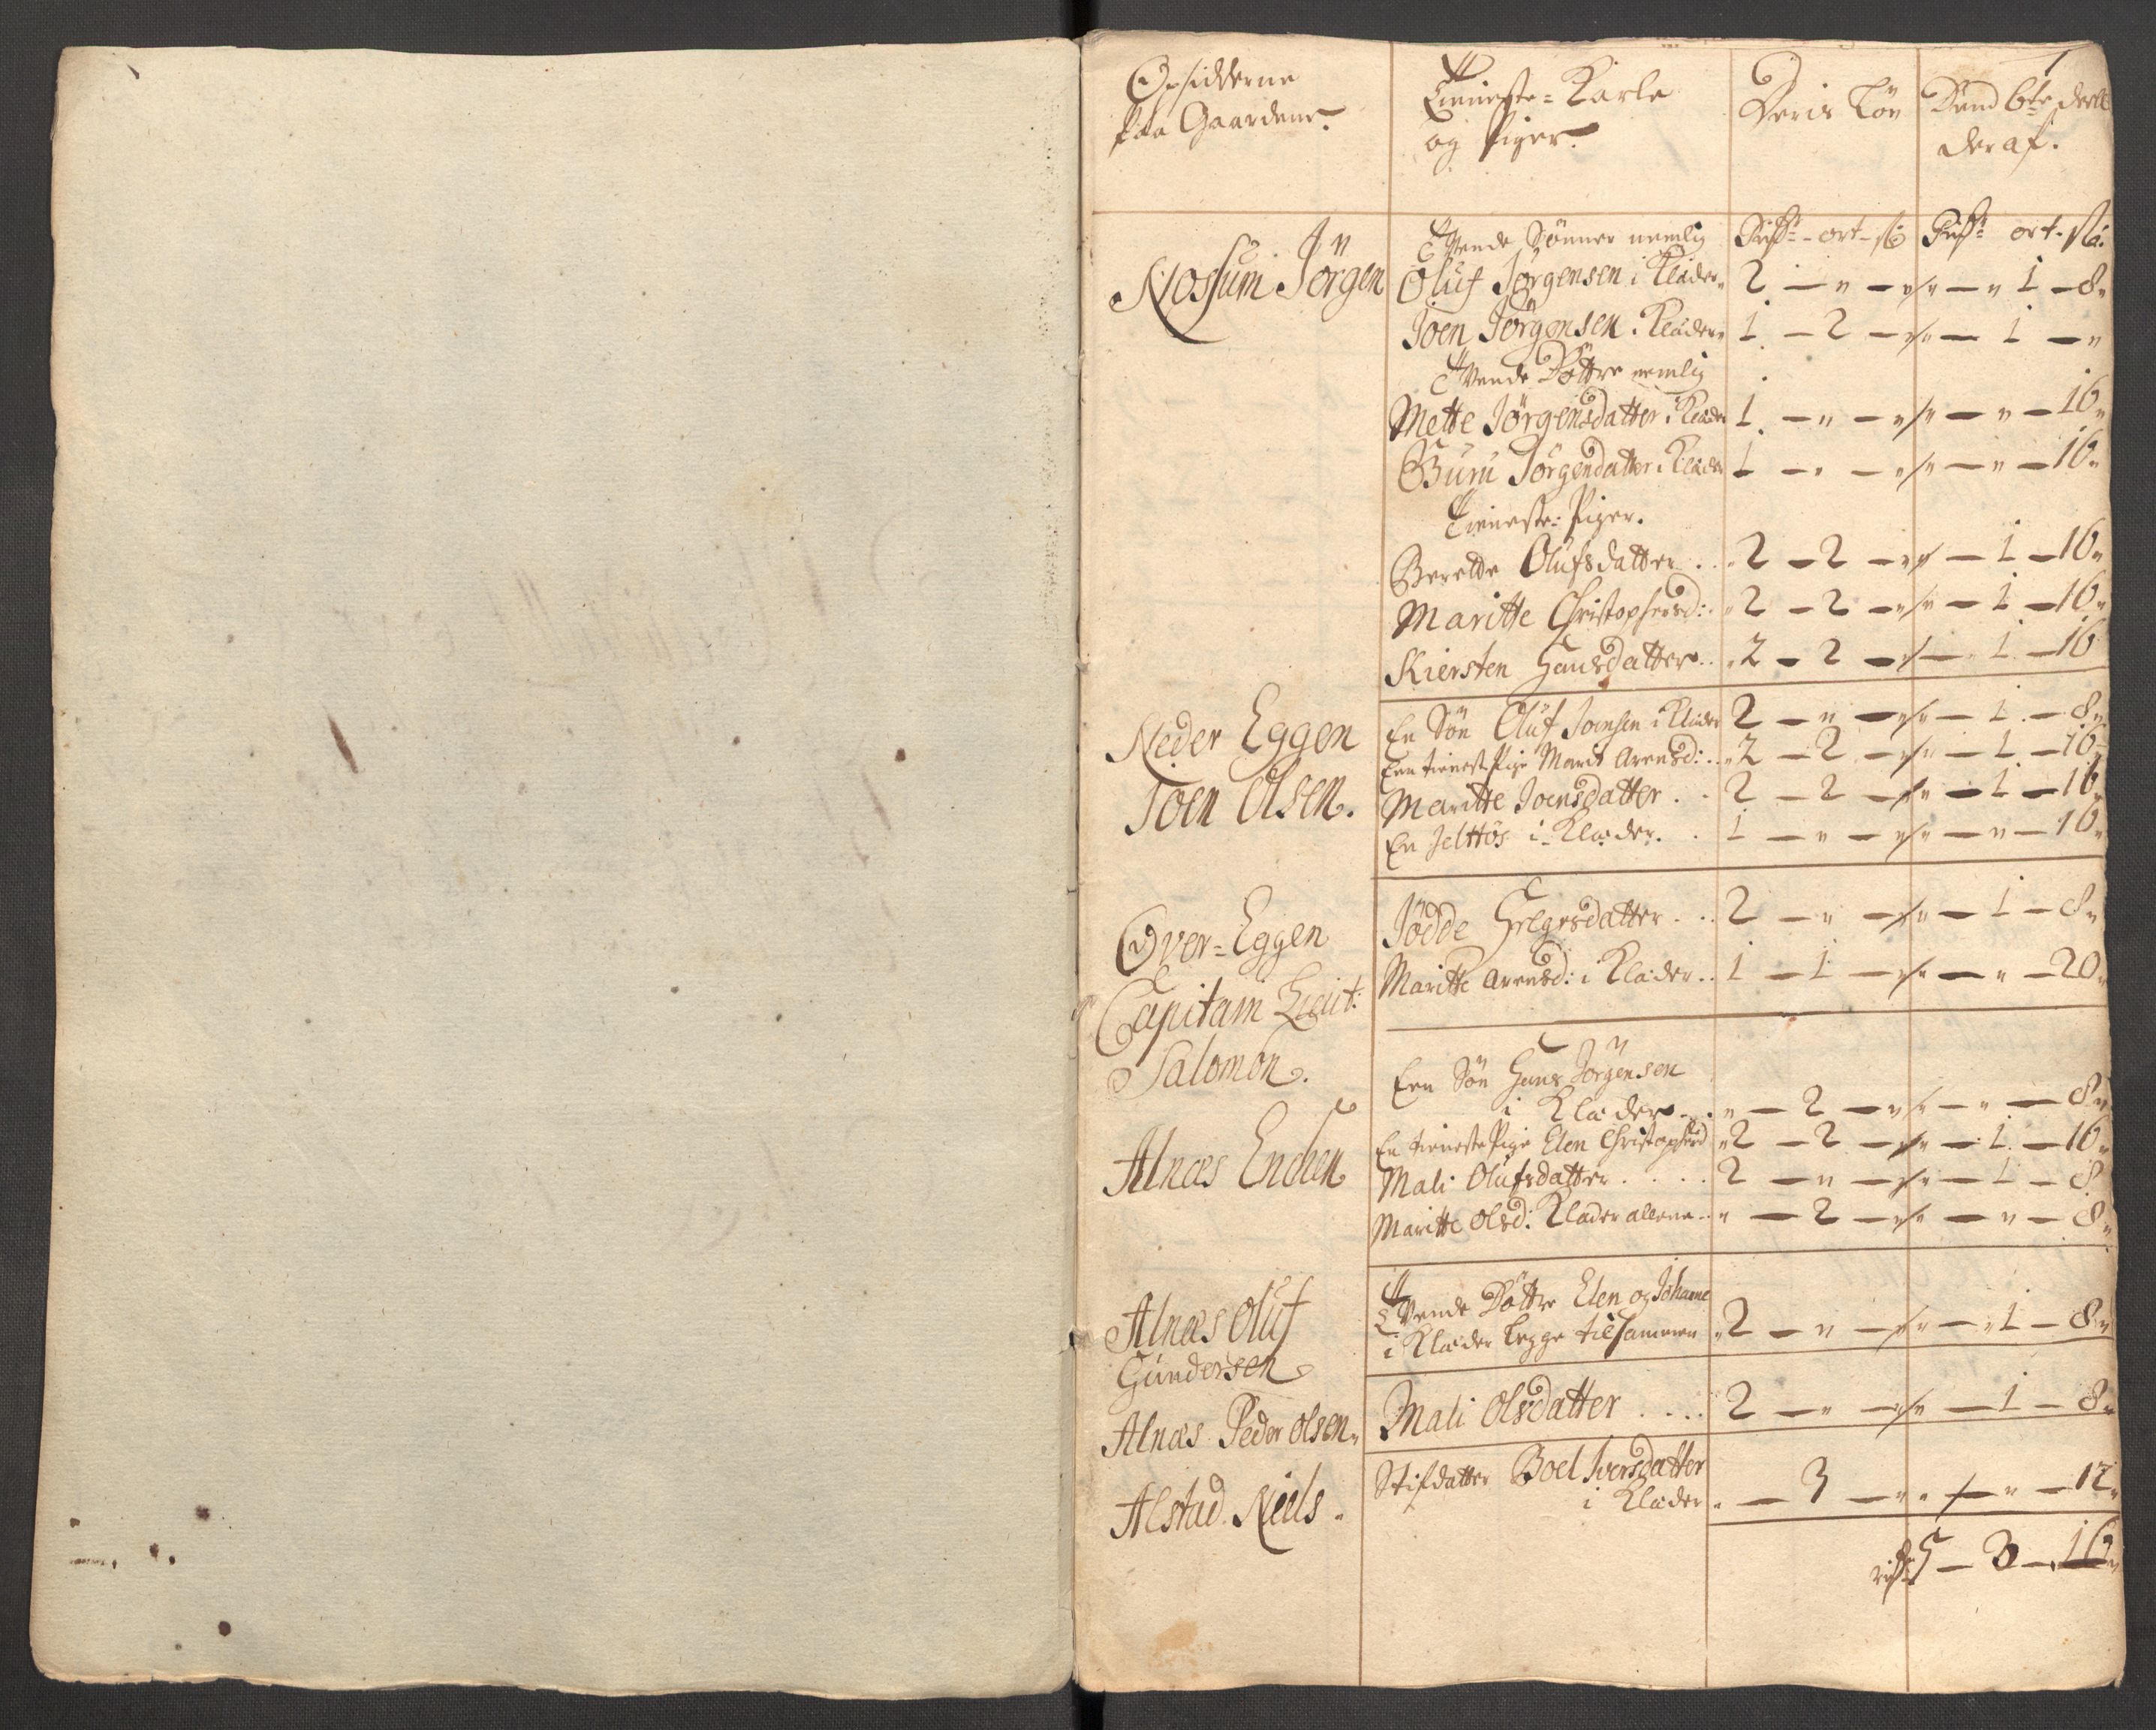 1
Opsidderne
paa Gaardene.
Tienneste-Karle
og Piger.
Deris Løn
Dend 6te deel
der af.
Rixdr - ort - sk
Rixdr ort - sk.
Nossum Jörgen
Tvende Sönner nemlig
Oluf Jörgensen i Klæder 2 — " — " — " 1 — 8"
Joen Jörgensen i Klæder 1 — 2 — " — 1 — "
Tvende Döttre nemlig
Mette Jörgensdatter i Klæder 1 — " — " — " — 16"
Guru Jörgendatter i Klæder 1 — " — " — " — 16"
Tieneste-Piger.
Berette Olufsdatter . . 2 — 2 — " — 1 — 16"
Maritte Christophersd: 2 — 2 — " — 1 — 16"
Kiersten Hansdatter . . 2 — 2 — " — 1 — 16
Neder Eggen
Joen Olsen.
En Sön Oluf Joensen i Klæder 2 — " — " — 1 — 8"
Een tieneste Pige Marit Arensd: . . 2 — 2 — " — 1 — 16"
Maritte Joensdatter . . 2 — 2 — " — 1 — 16"
En i Klæder. . 1 — " — " — " — 16"
Over-Eggen
Capitain Lieut:
Salomon.
Jödde Gregersdatter . . 2 — " — " — 1 — 8"
Maritte Arensd: i Klæder . . 1 — 1 — " — " — 20"
Alnæs Enchen
Een Sön Hans Jörgensen
i Klæder . . " — 2 — " — " — 8"
En tieneste Pige Elen Christophersd "2 — 2 — " — 1 — 16"
Mali Olufsdatter . . . . 2 — " — " — 1 — 8
Maritte Olsd: Klæder allene . . " — 2 — " — " — 8"
Alnæs Oluf
Gundersen
Tvende Döttre Elen og Johanne
i Klæder begge tilsammen "2 — " — " — " 1 — 8"
Alnæs Peder Olsen"
Mali Olsdatter . . . . 2 — " — " — 1 — 8"
Alstad Niels "
Stifdatter Boel Iversdatter
i Klæder " — 3 — " — " — 12"
rixdr 5 — 3 — 16"